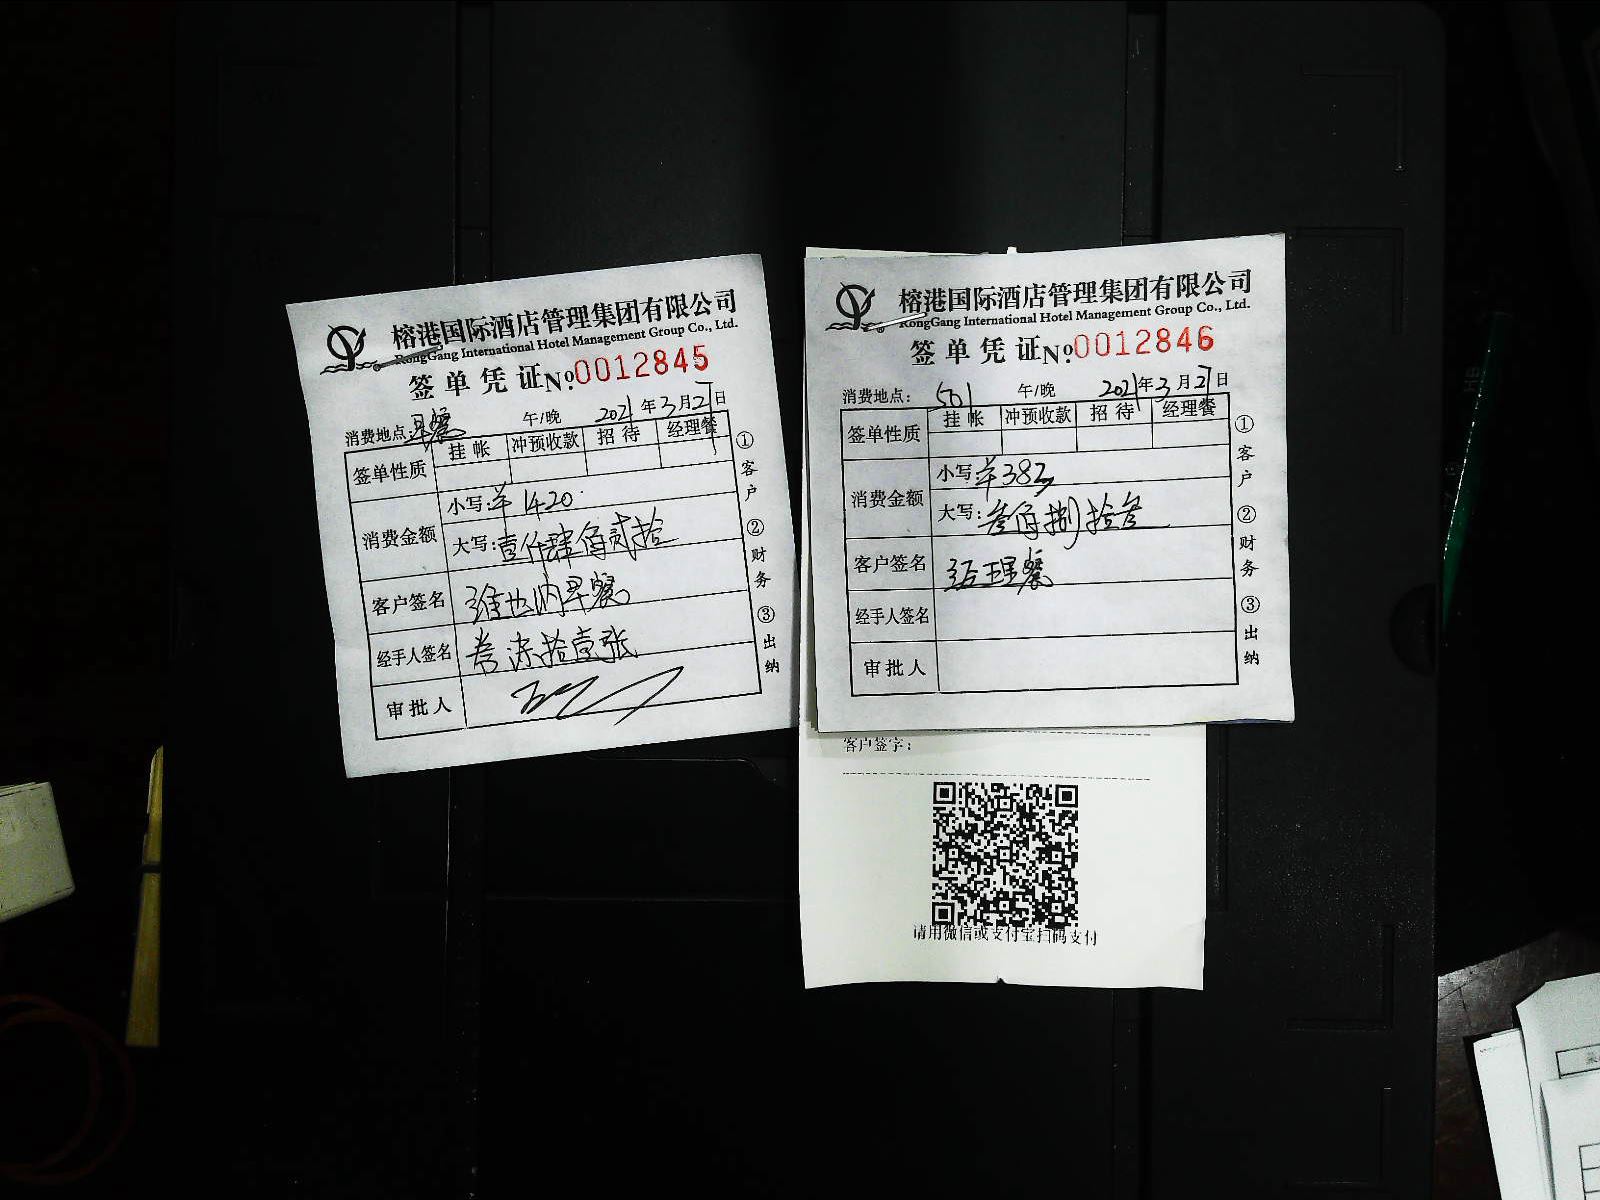 榕港国际酒店管理集团有限公司
RongGang International Hotel Management Group Co., Ltd.
签单凭证 No.0012845
消费地点：早餐 午/晚 2021年3月27日
签单性质 挂帐 冲预收款 招待 经理餐
消费金额 小写：羊1420
大写：壹仟肆佰贰拾
客户签名 维也纳早餐
经手人签名 券柒拾壹张
审批人
①客户 ②财务 ③出纳
榕港国际酒店管理集团有限公司
RongGang International Hotel Management Group Co., Ltd.
签单凭证 No.0012846
消费地点： 501 午/晚 2021年3月27日
签单性质 挂帐 冲预收款 招待 经理餐
消费金额 小写：羊383
大写：叁佰捌拾叁
客户签名 经理餐
经手人签名
审批人
①客户 ②财务 ③出纳
客户签字：
请用微信或支付宝扫码支付